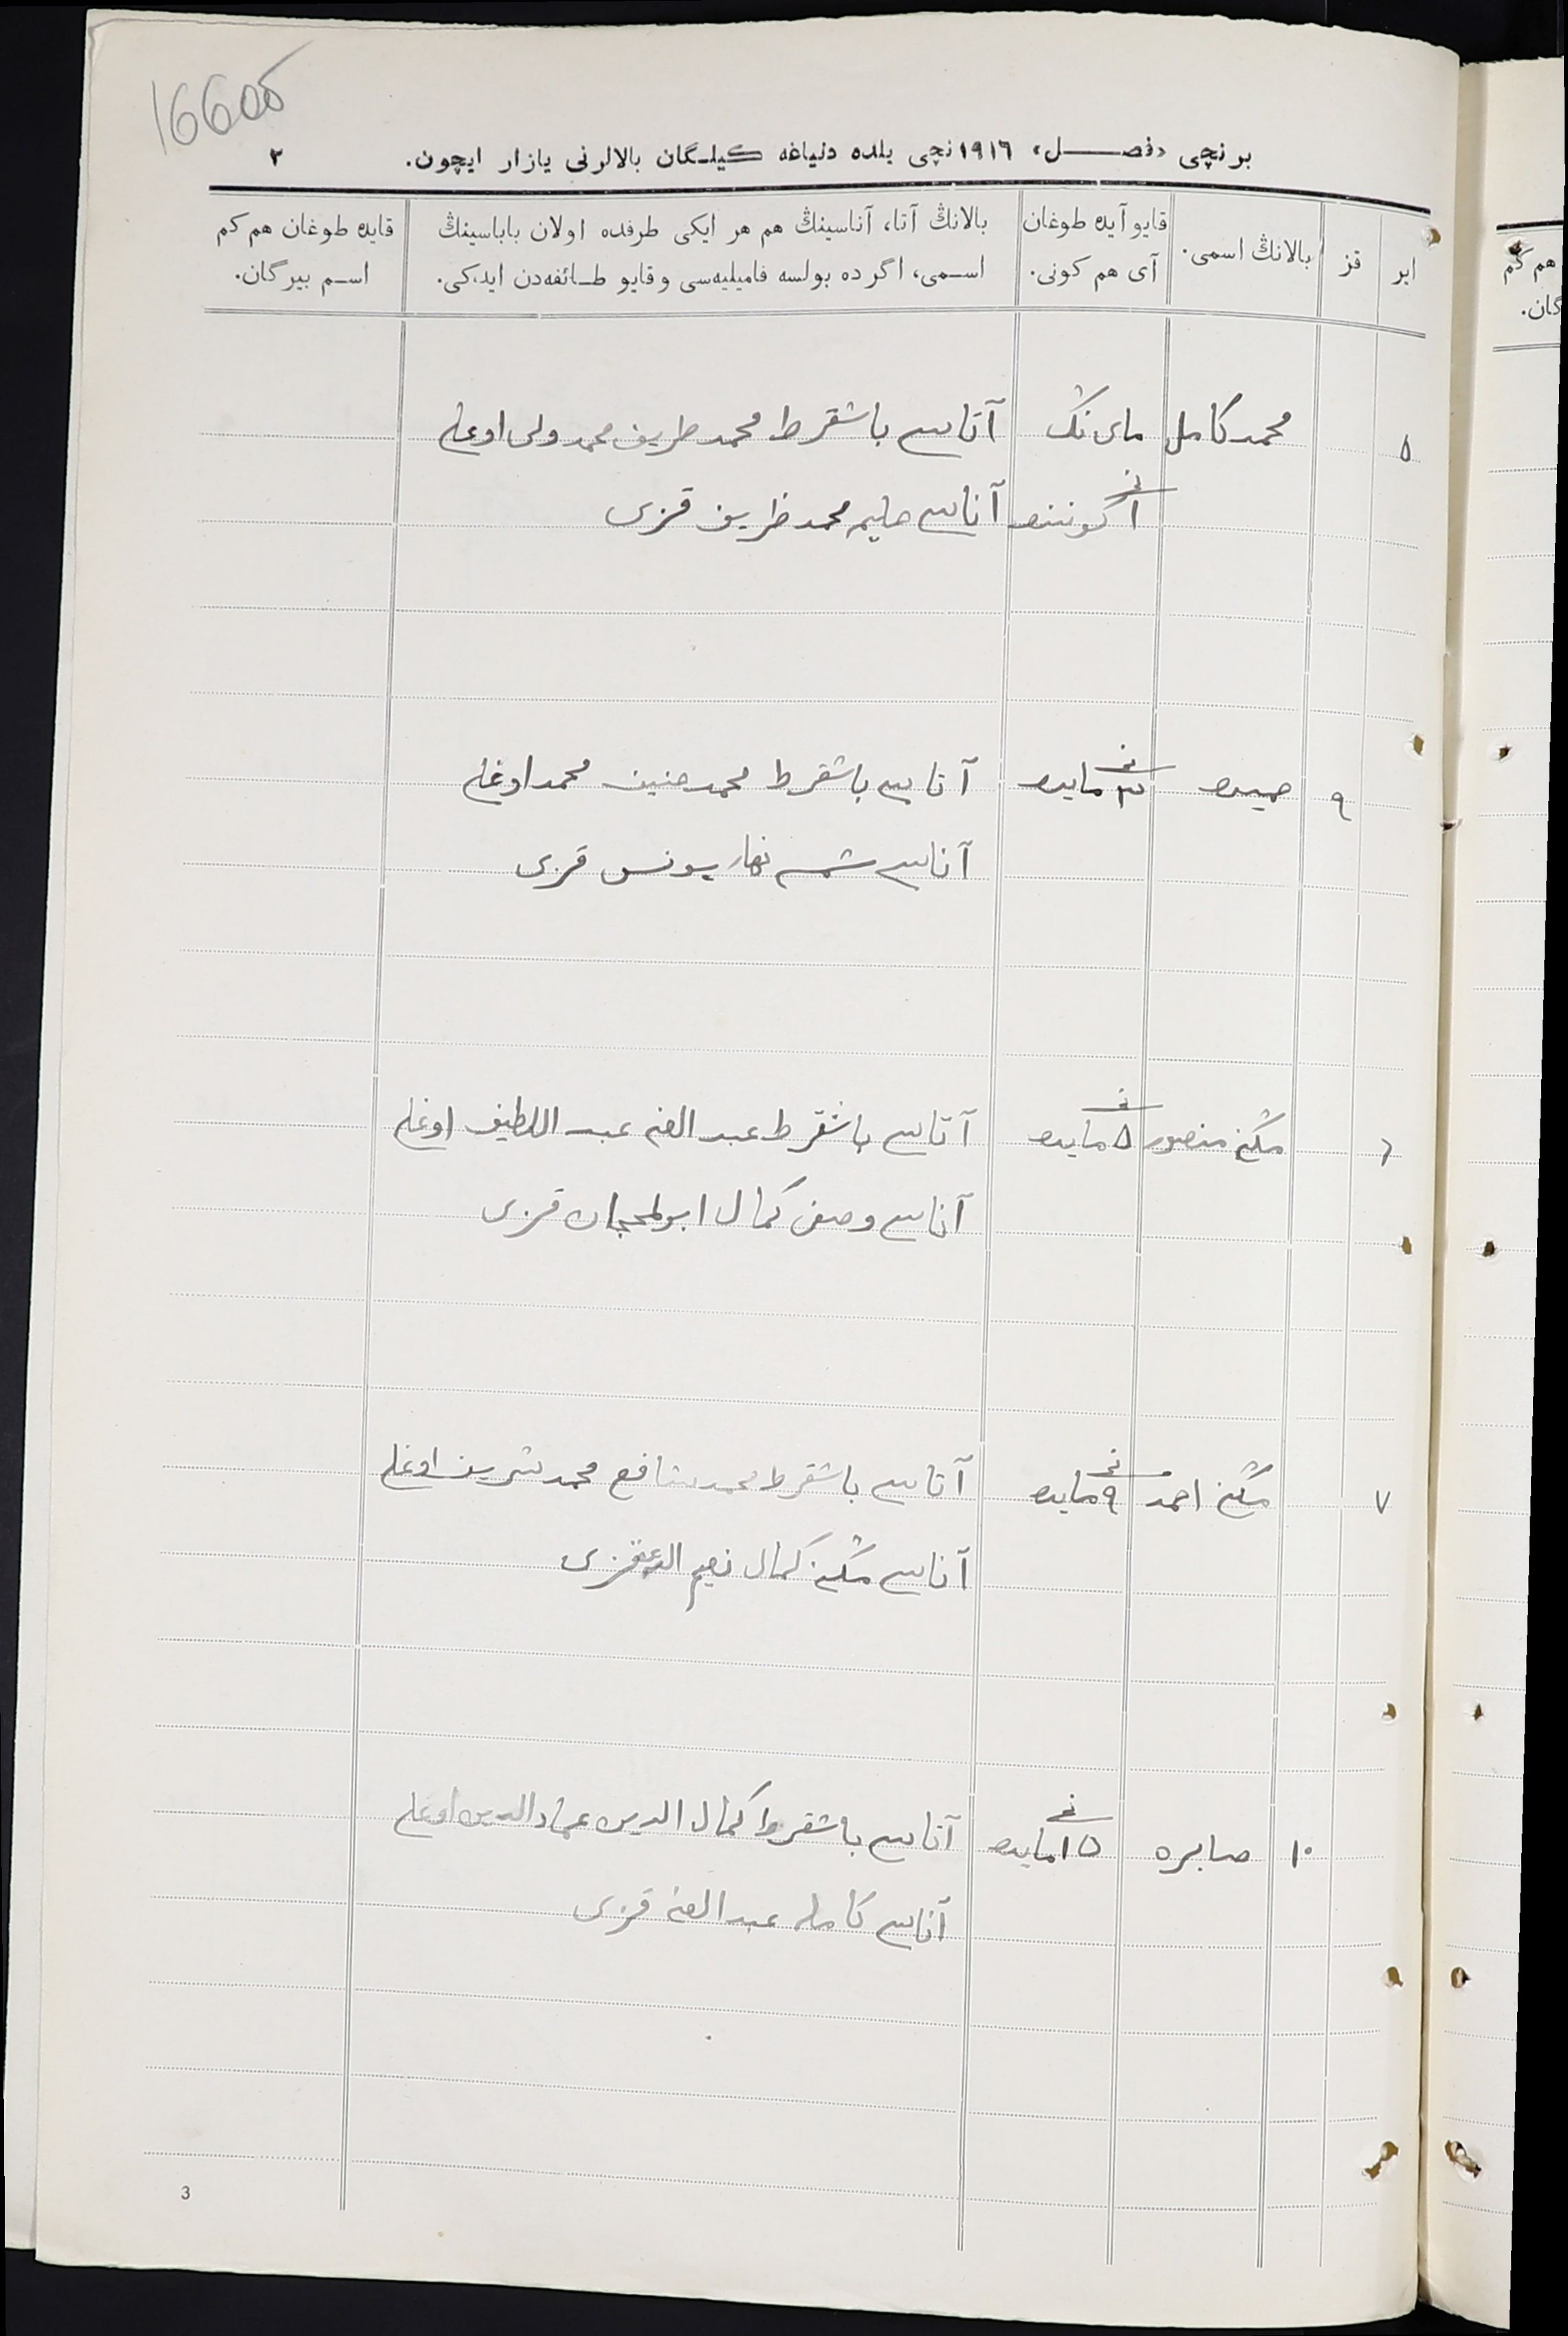 16605
برنچی «فصل» ١٩١٦ نچی یلده دنیاغه كیلگان بالالرنی یازار ایچون. ٢
ایر
قز
بالانڭ اسمی.
قایو آیده طوغان
آی هم كونی.
بالانڭ آتا، آناسینڭ هم هر ایكی طرفده اولان باباسینڭ
اسمی، اگر ده بولسه فامیلیه‌سی و قایو طائفه‌دن ایدكی.
قایده طوغان هم كم
اسم بیرگان.
هم كم
گان.
٥ محمد كامل مای نڭ آتاسی باشقرط محمد ظریف محمد ولی اوغلی
١ نچی كوننده آناسی حلیمه محمد ظریف قزی
٩ ٣ نچی مایده آتاسی باشقرط محمد حنیف محمد اوغلی
آناسی شمس نهار یونس قزی
٦ منصور ٥ نچی مایده آتاسی باشقرط عبد الغنی عبد اللطیف اوغلی
آناسی وصفی كمال قزی
٧ احمد ٩ نچی مایده آتاسی باشقرط محمد شافع محمد شریف اوغلی
آناسی كمال نعیم قزی
١٠ صابره ١٥ نچی مایده آتاسی باشقرط كمال الدین عماد الدین اوغلی
آناسی كامله عبد الغنی قزی
3